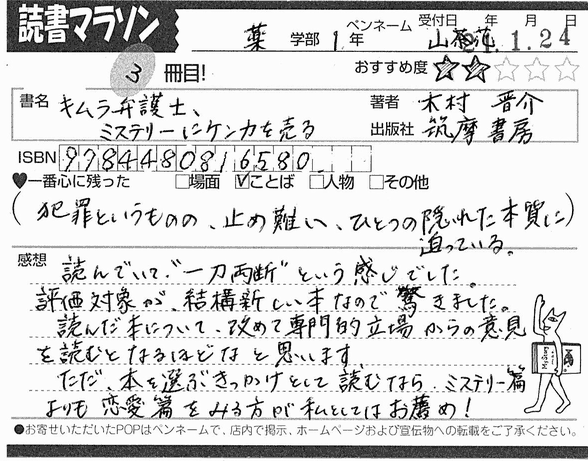 読書マラソン
薬 学部 1 年 ペンネーム 山荷花 受付日 年 月 日
21.1.24
3 冊目! おすすめ度 ★★☆☆☆
書名 キムラ弁護士、 著者 木村 晋介
ミステリーにケンカを売る 出版社 筑摩書房
ISBN 9784480816580
♥一番心に残った □場面 ☑ことば □人物 □その他
(犯罪というものの、止め難い、ひとつの隠れた本質に)
迫っている。
感想 読んでいて、"一刀両断"という感じでした。
評価対象が、結構新しい本なので驚きました。
読んだ本について、改めて専門的立場からの意見
を読むとなるほどなと思います。
ただ、本を選ぶきっかけとして読むなら、ミステリー篇
よりも恋愛篇をみる方が私としてはお薦め!
●お寄せいただいたPOPはペンネームで、店内で掲示、ホームページおよび宣伝物への転載をご了承ください。